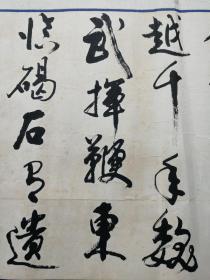 越千年魏
武揮鞭東
臨碣石有遺